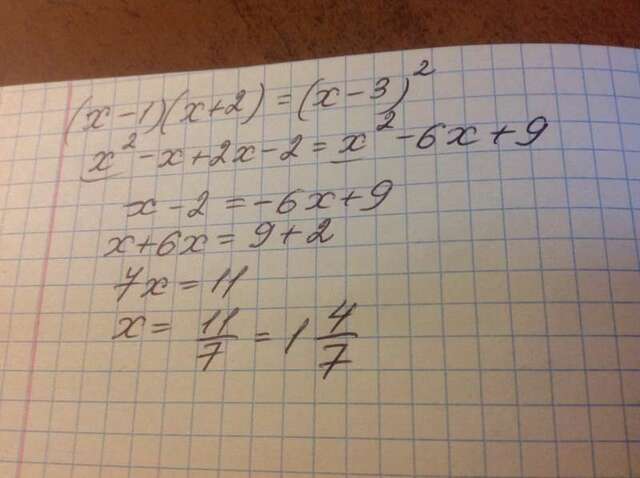 (x-1)(x+2) = (x-3)²
x²-x+2x-2 = x²-6x+9
x-2 = -6x+9
x+6x = 9+2
7x = 11
x = 11/7 = 1 4/7